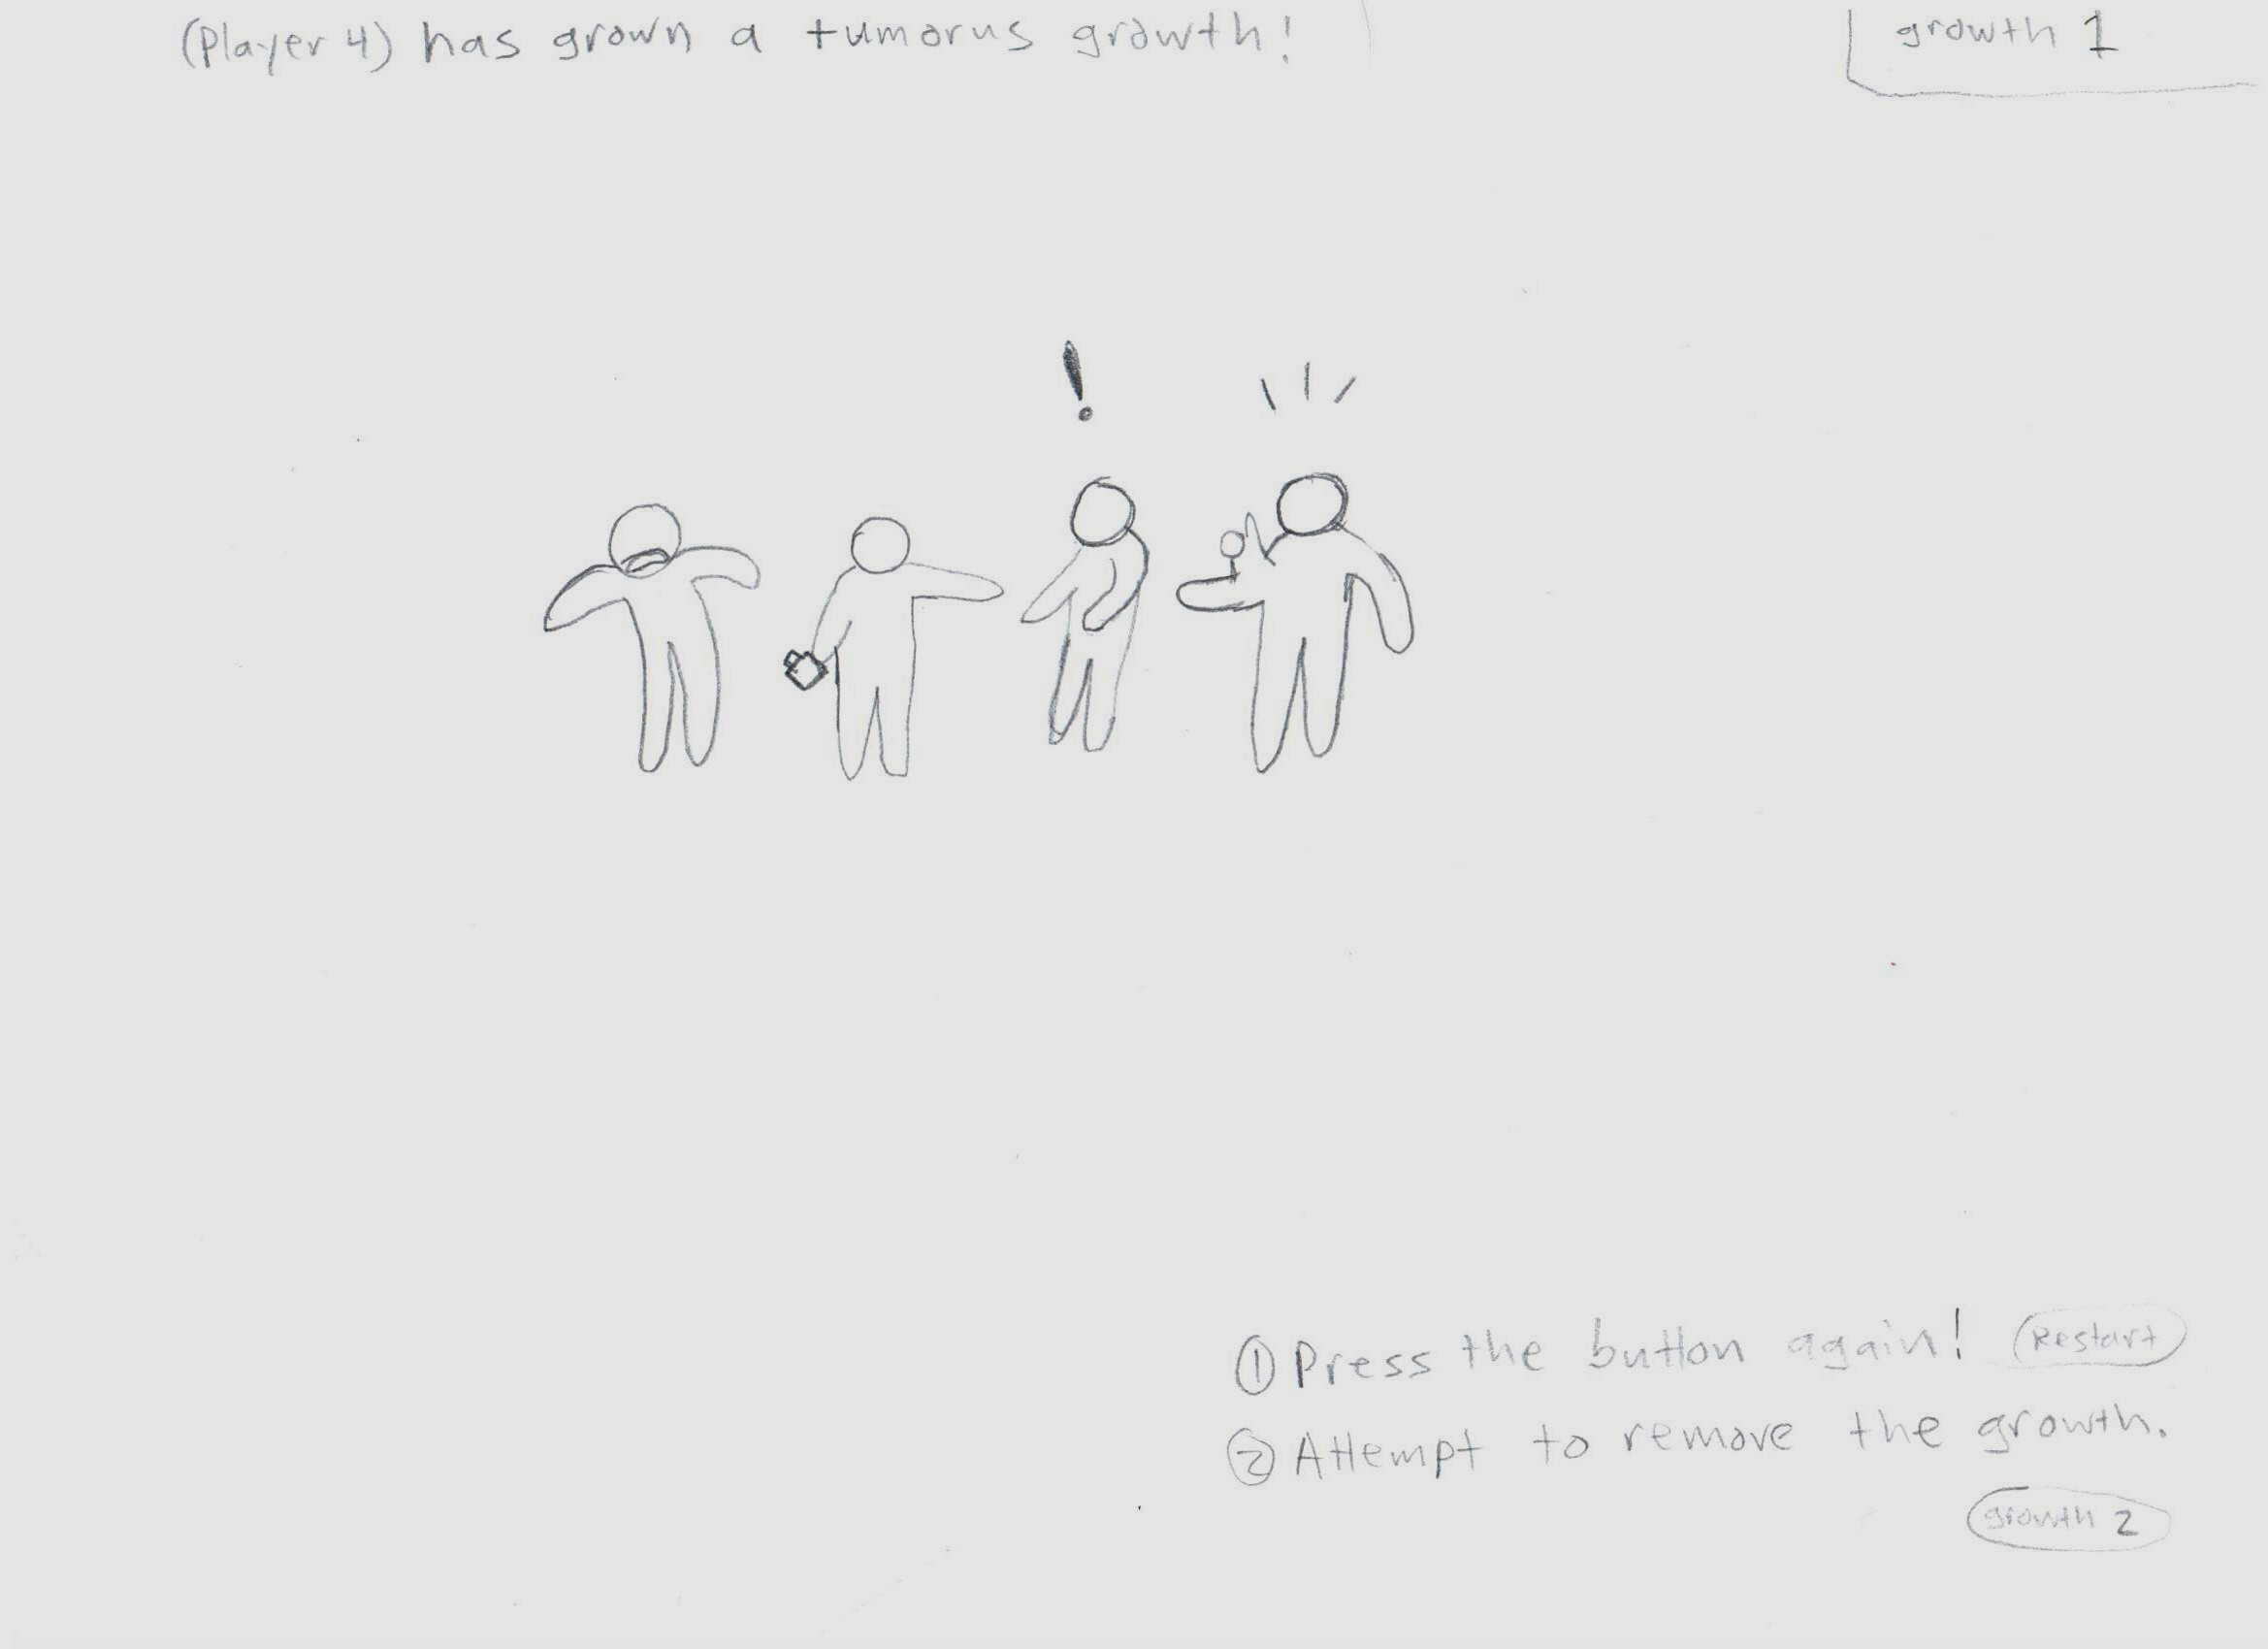 (Player 4) has grown a tumorus growth!
growth 1
!
① Press the button again! Restart
② Attempt to remove the growth.
growth 2